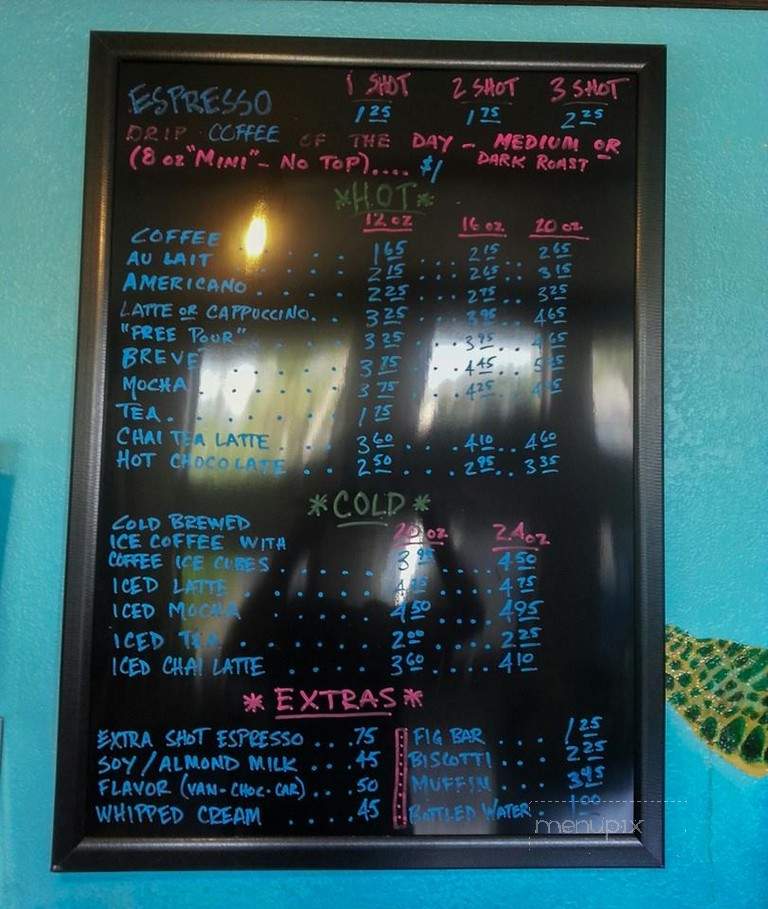 ESPRESSO 1 SHOT 2 SHOT 3 SHOT
1 25 1 75 2 25
DRIP COFFEE OF THE DAY - MEDIUM OR
(8 oz "MINI" - NO TOP).... $1 DARK ROAST
*HOT*
12 oz 16 oz 20 oz
COFFEE . . . . . 1 65 . . . 2 15 . . 2 65
AU LAIT . . . . . 2 15 . . . 2 65 . . 3 15
AMERICANO . . . . . 2 25 . . . 2 75 . . 3 25
LATTE OR CAPPUCCINO. . 3 25 . . . 3 95 . . 4 65
"FREE POUR" . . . . 3 25 . . . 3 95 . . 4 65
BREVE . . . . . 3 75 . . . 4 45 . . 5
MOCHA . . . . . 3 75 . . . 4 25 . . 4
TEA . . . . . . 1 75
CHAI TEA LATTE . . . . 3 60 . . . 4 10 . . 4 60
HOT CHOCOLATE . . 2 50 . . . 2 95 . . 3 35
*COLD*
COLD BREWED
ICE COFFEE WITH 20 oz 24 oz
COFFEE ICE CUBES . . . . . 3 95 . . . . 4 50
ICED LATTE . . . . . . 4 . . . . 4 75
ICED MOCHA . . . . . 4 50 . . . . 4 95
ICED TEA . . . . . . 2 00 . . . . 2 25
ICED CHAI LATTE . . . . 3 60 . . . . 4 10
*EXTRAS*
EXTRA SHOT ESPRESSO . . . .75
SOY/ALMOND MILK . . . .45
FLAVOR (VAN-CHOC-CAR) . . .50
WHIPPED CREAM . . . . .45
FIG BAR . . . . 1 25
BISCOTTI . . . . 2 25
MUFFIN . . . 3 95
BOTTLED WATER . 1 00
menupix